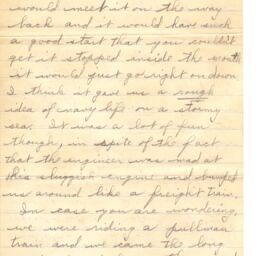 would meet it on the way
back and it would have such
a good start that you couldn't
get it stopped inside the mouth
it would just go right on down
I think it gave us a rough
idea of navy life on a stormy
sea. It was a lot of fun
though, in spite of the fact
that the engineer was mad at
his sluggish engine and bumped
us around like a freight train.
In case you are wondering,
we were riding a pullman
train and we came the long